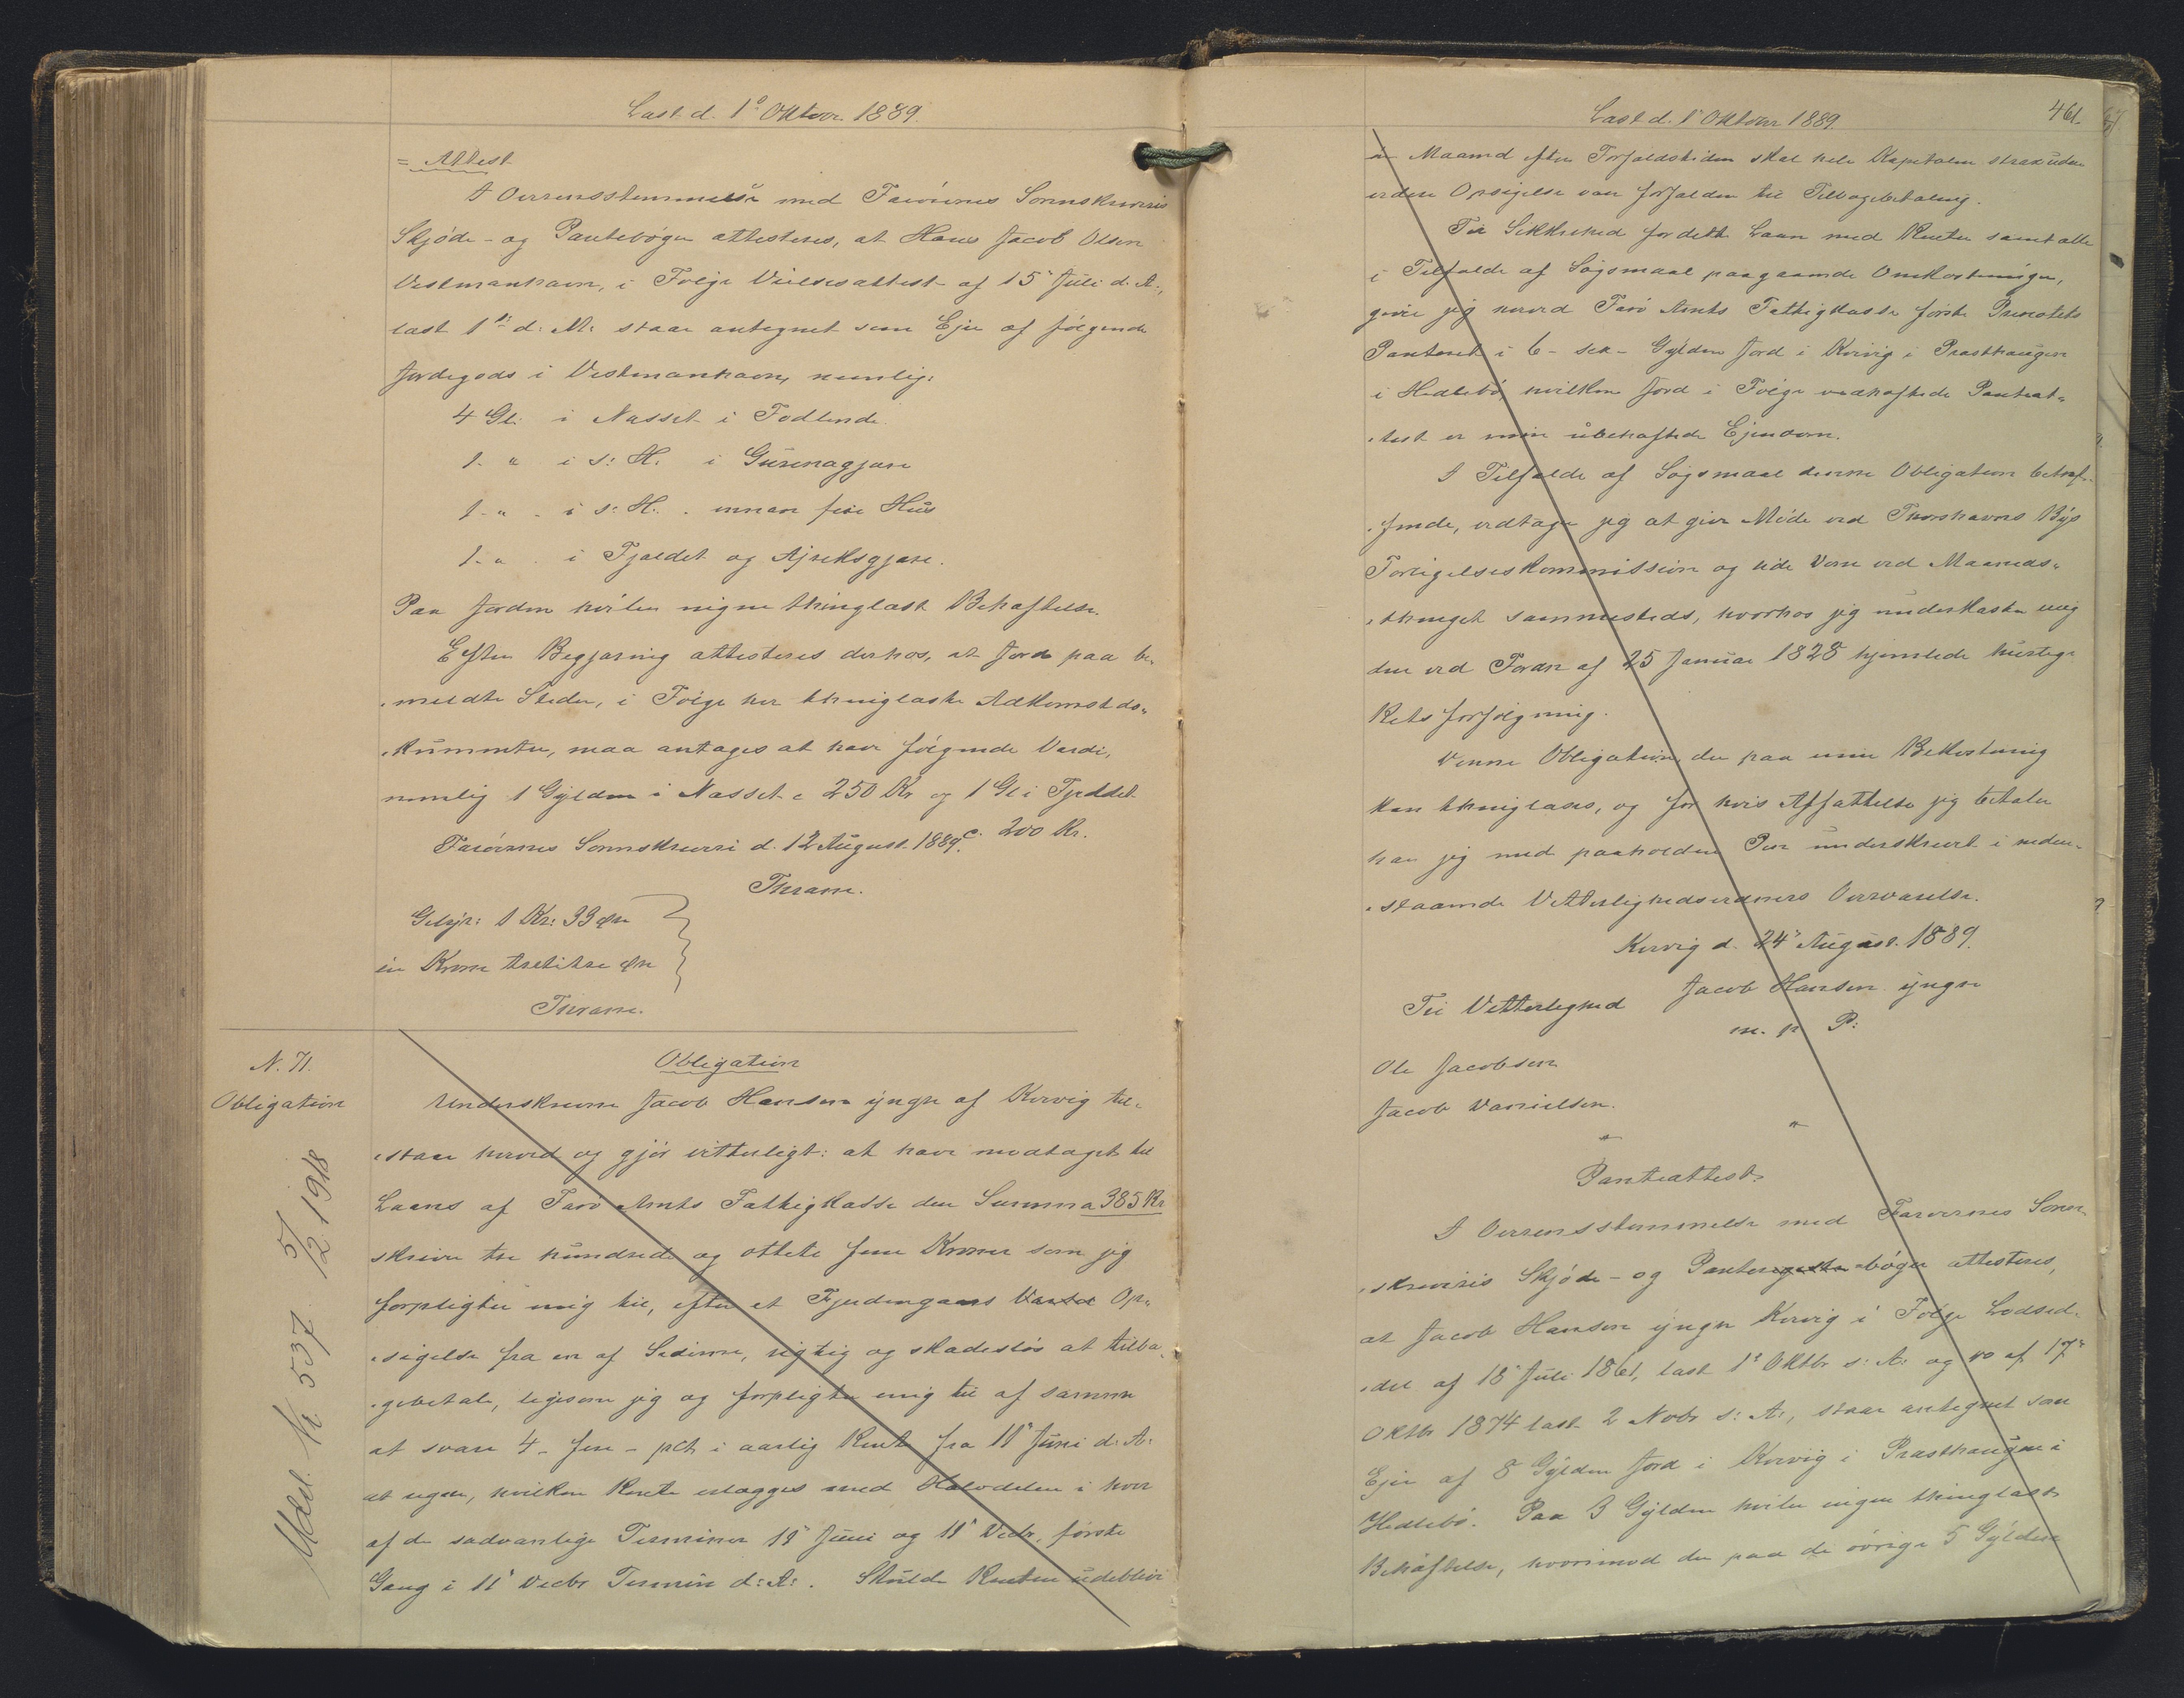 Læst d. 1º Oktobr. 1889.
= Attest
I Overensstemmelse med Færöernes Sorenskriveris
Skjöde- og Pantebøger attesteres, at Hans Jacob Olsen
Vestmanhavn, i Følge Vielsesattest af 15' Juli d. A.,
læst 1ste d: M: staar antegnet som Ejer af følgende
Jordegods i Vestmanhavn, nemlig:
4 Gl: i Nasset i Fodlende.
1. " i s: H. i Gursenagjare
1 - " - i s: H. . innan fur Hus
1 - " . i Fjældet og Ajreksgjare.
Paa Jorden hviler ingen thinglæst Behæftelse.
Efter Begjæring attesteres derhos, at Jord paa be-
meldte Steder, i Følge her thinglæste Adkomstdo-
kumenter, maa antages at have følgende Værdi,
nemlig 1 Gylden i Nasset c 250 Kr og 1 Gl i Fjeldet
c. 200 Kr.
Færöernes Sorenskriveri d. 12 August 1889.
Thrane.
Gebyr: 1 Kr: 33 Øre
én Krone tretitre Øre
Thrane.
N. 71.
Obligation
Mdel. Nr. 537 5/12 1918
Obligation
Underskrevne Jacob Hansen yngre af Kvivig til-
staar herved og gjör vitterligt: at have modtaget til
Laans af Færö Amts Fattigkasse den Summa 385 Kr
skriver tre hundrede og otteti fem Kroner som jeg
forpligter mig til, efter et Fjerdingaars Varsel Op-
sigelse fra en af Siderne, rigtig og skadeslös at tilba-
gebetale, ligesom jeg og forpligter mig til af samme
at svare 4 - fire - pCt i aarlig Rente fra 11' Juni d: A:
at regne, hvilken Rente erlægges med Halvdelen i hver
af de sædvanlige Terminer 11' Juni og 11' Decbr, første
Gang i 11' Decbr Termin d: A: . Skulde Renten udeblive
Læst d. 1' Oktober 1889.
461.
en Maaned efter Forfaldstiden skal hele Kapitalen strax uden
videre Opsigelse være forfalden til Tilbagebetaling.
Til Sikkerhed for dette Laan med Renter samt alle
i Tilfælde af Søgsmaal paagaaende Omkostninger,
giver jeg herved Færö Amts Fattigkasse første Prioritets
Panteret i 6 - sex - Gylden Jord i Kvivig i Præsthaugen
i Hedlebö, hvilken Jord i Følge vedhæftede Panteat-
test er min übehæftede Ejendom.
I Tilfælde af Søgsmaal denne Obligation betræf-
fende, vedtager jeg at give Møde ved Thorshavns Bys
Forligelseskommission og lide Dom ved Maaneds-
thinget sammesteds, hvorhos jeg underkaster mig
den ved Foran af 25 Januar 1828 hjemlede hurtige
Retsforfølgning.
Denne Obligation, der paa min Bekostning
kan thinglæses, og for hvis Affattelse jeg betaler
har jeg med paaholden Pen underskrevet i neden-
staaende Vitterlighedsvidners Overværelse.
Kvivig d. 24' August. 1889.
Jacob Hansen yngre
m. p. P:
Til Vitterlighed
Ole Jacobsen
Jacob Danielsen.
Panteattest
I Overensstemmelse med Færöernes Soren-
skriveris Skjöde- og Panteregiste-bøger attesteres,
at Jacob Hansen yngre Kvivig i Følge Lodsed-
del af 18' Juli 1861, læst 1' Oktbr s: A: og do af 17'
Oktbr 1874 læst 2 Novbr s: A:, staar antegnet som
Ejer af 8 Gylden Jord i Kvivig i Præsthaugen i
Hedlebö. Paa 3 Gylden hviler ingen thinglæst
Behæftelse, hvorimod der paa de øvrige 5 Gylden